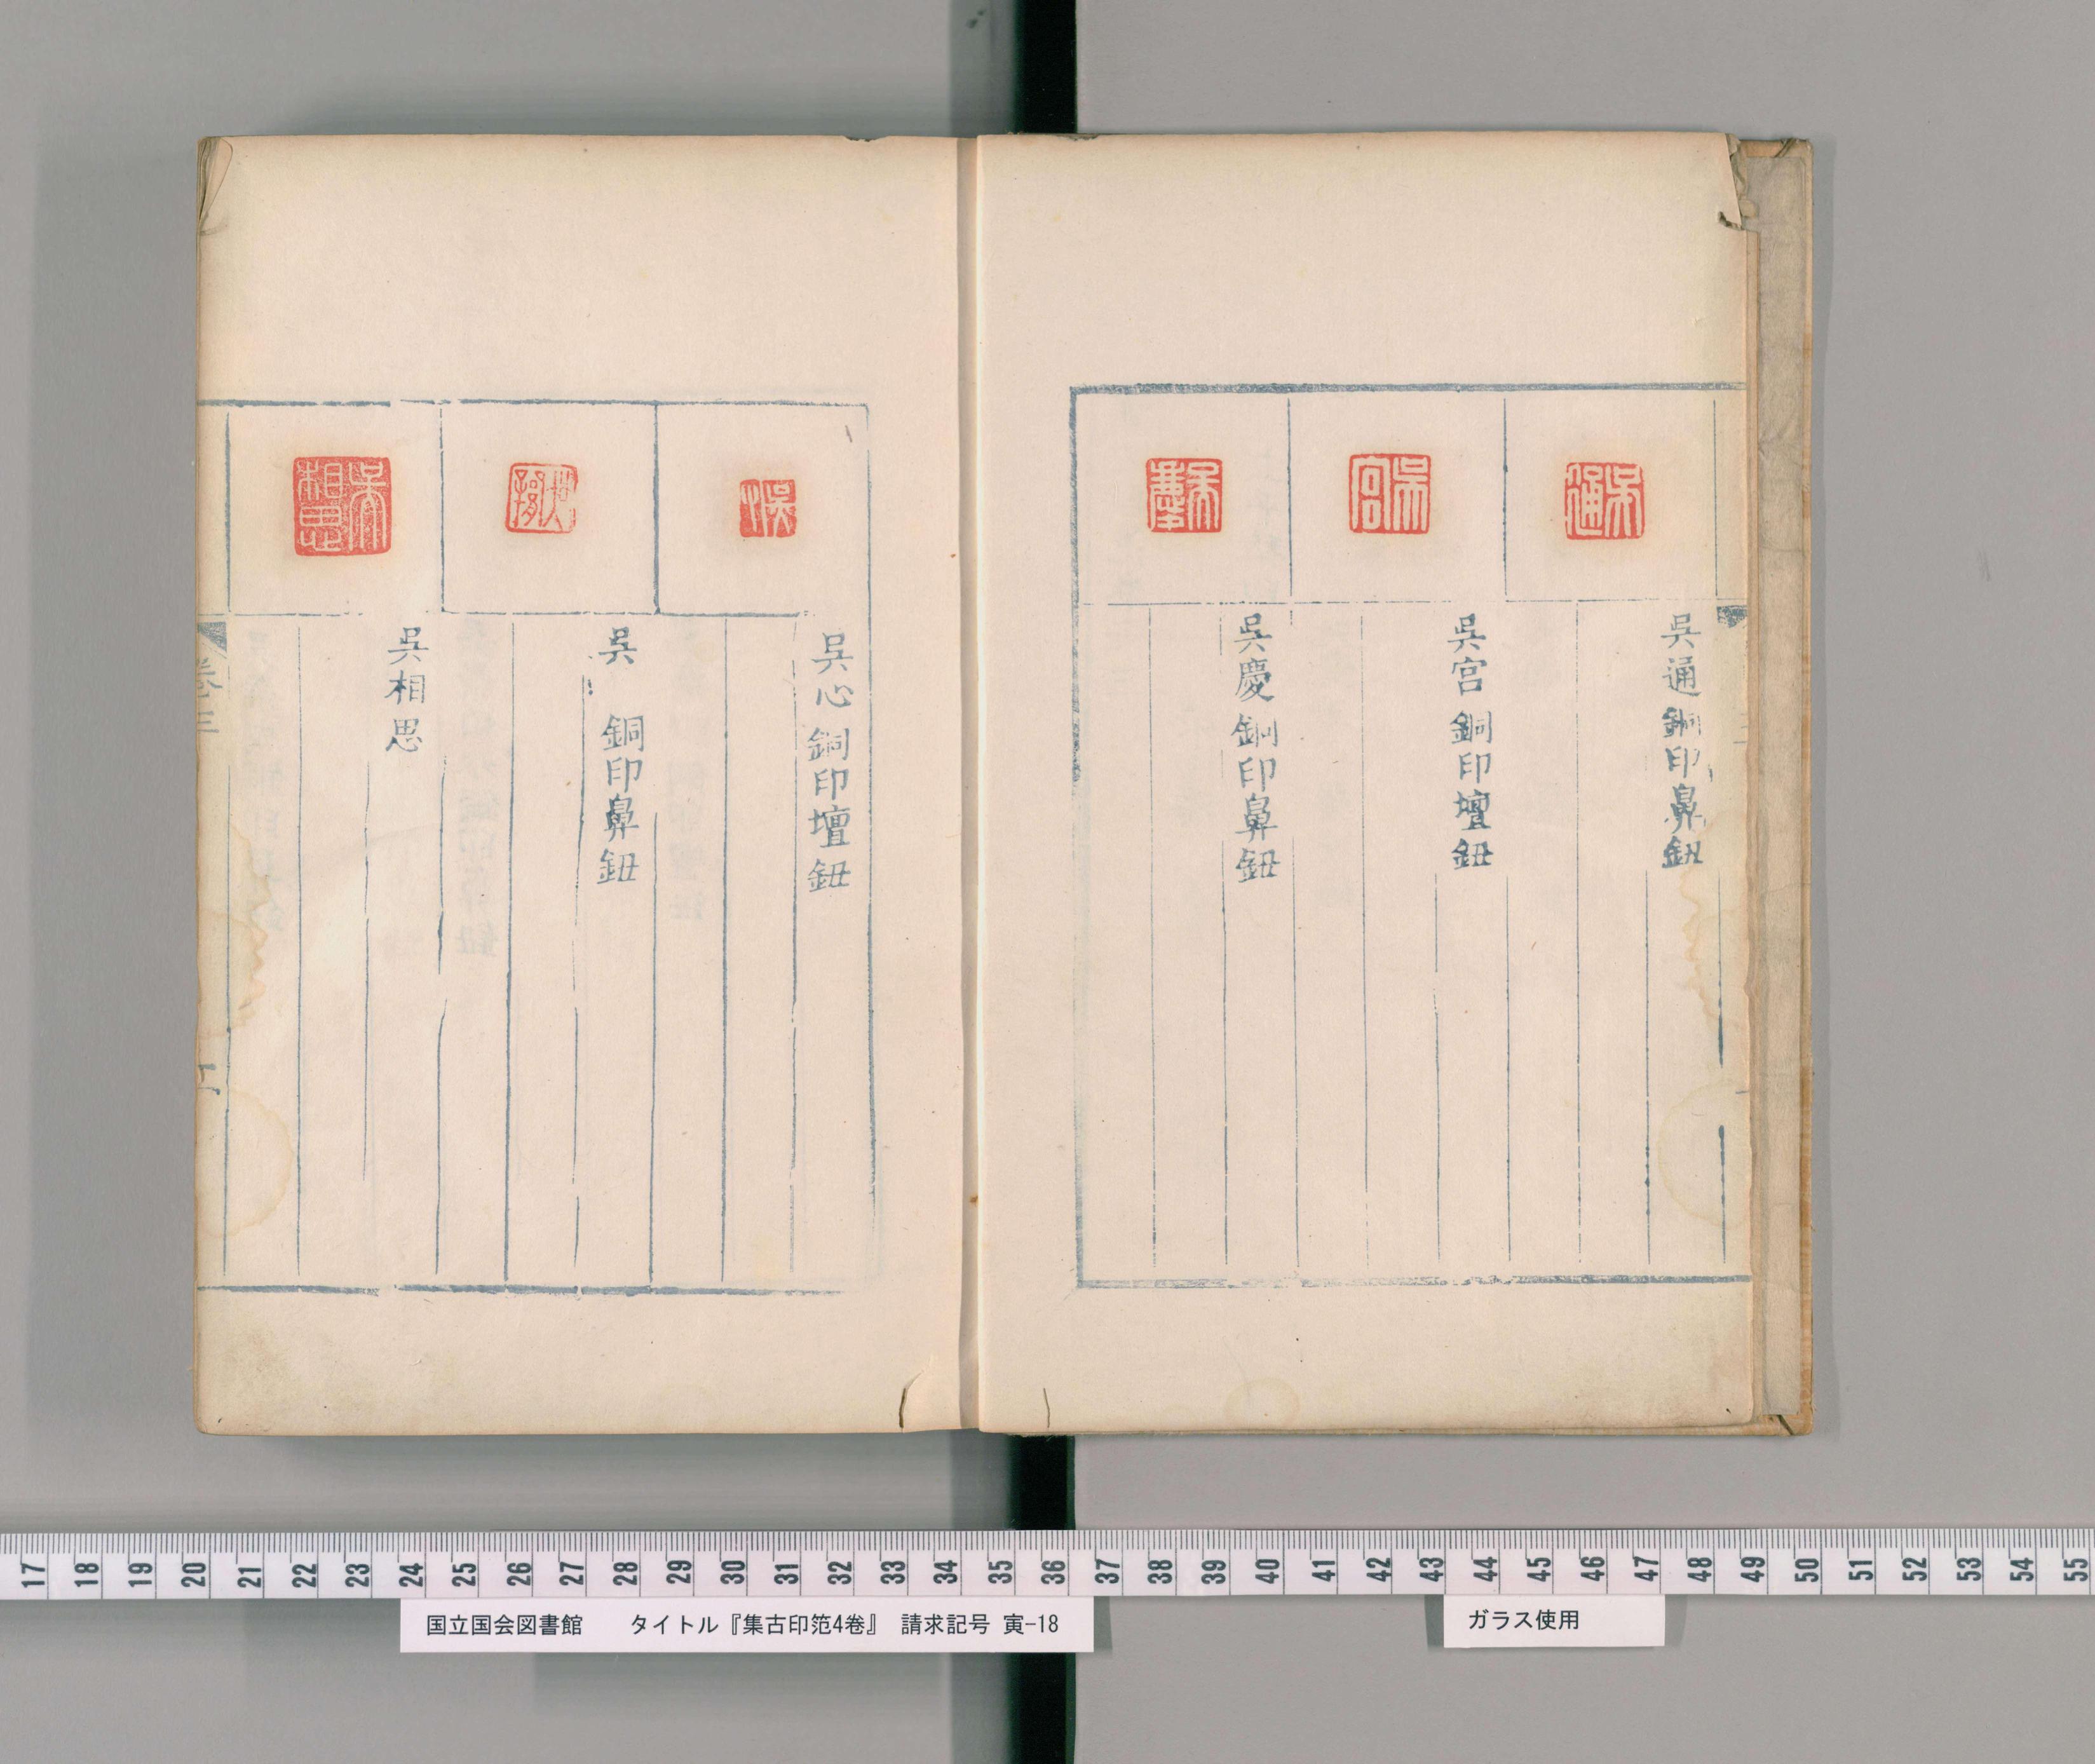 吳通 銅印鼻鈕
吳宮 銅印壇鈕
吳慶 銅印鼻鈕
吳心 銅印壇鈕
吳 銅印鼻鈕
吳相思
卷三
吳通
吳宮
吳慶
吳相思
17 18 19 20 21 22 23 24 25 26 27 28 29 30 31 32 33 34 35 36 37 38 39 40 41 42 43 44 45 46 47 48 49 50 51 52 53 54 55
国立国会図書館 タイトル『集古印笵4巻』 請求記号 寅-18
ガラス使用